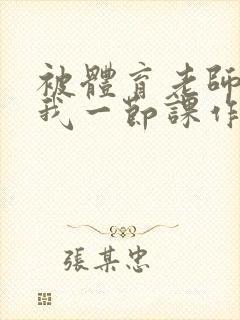 被體育老師
我一節課作
張某忠